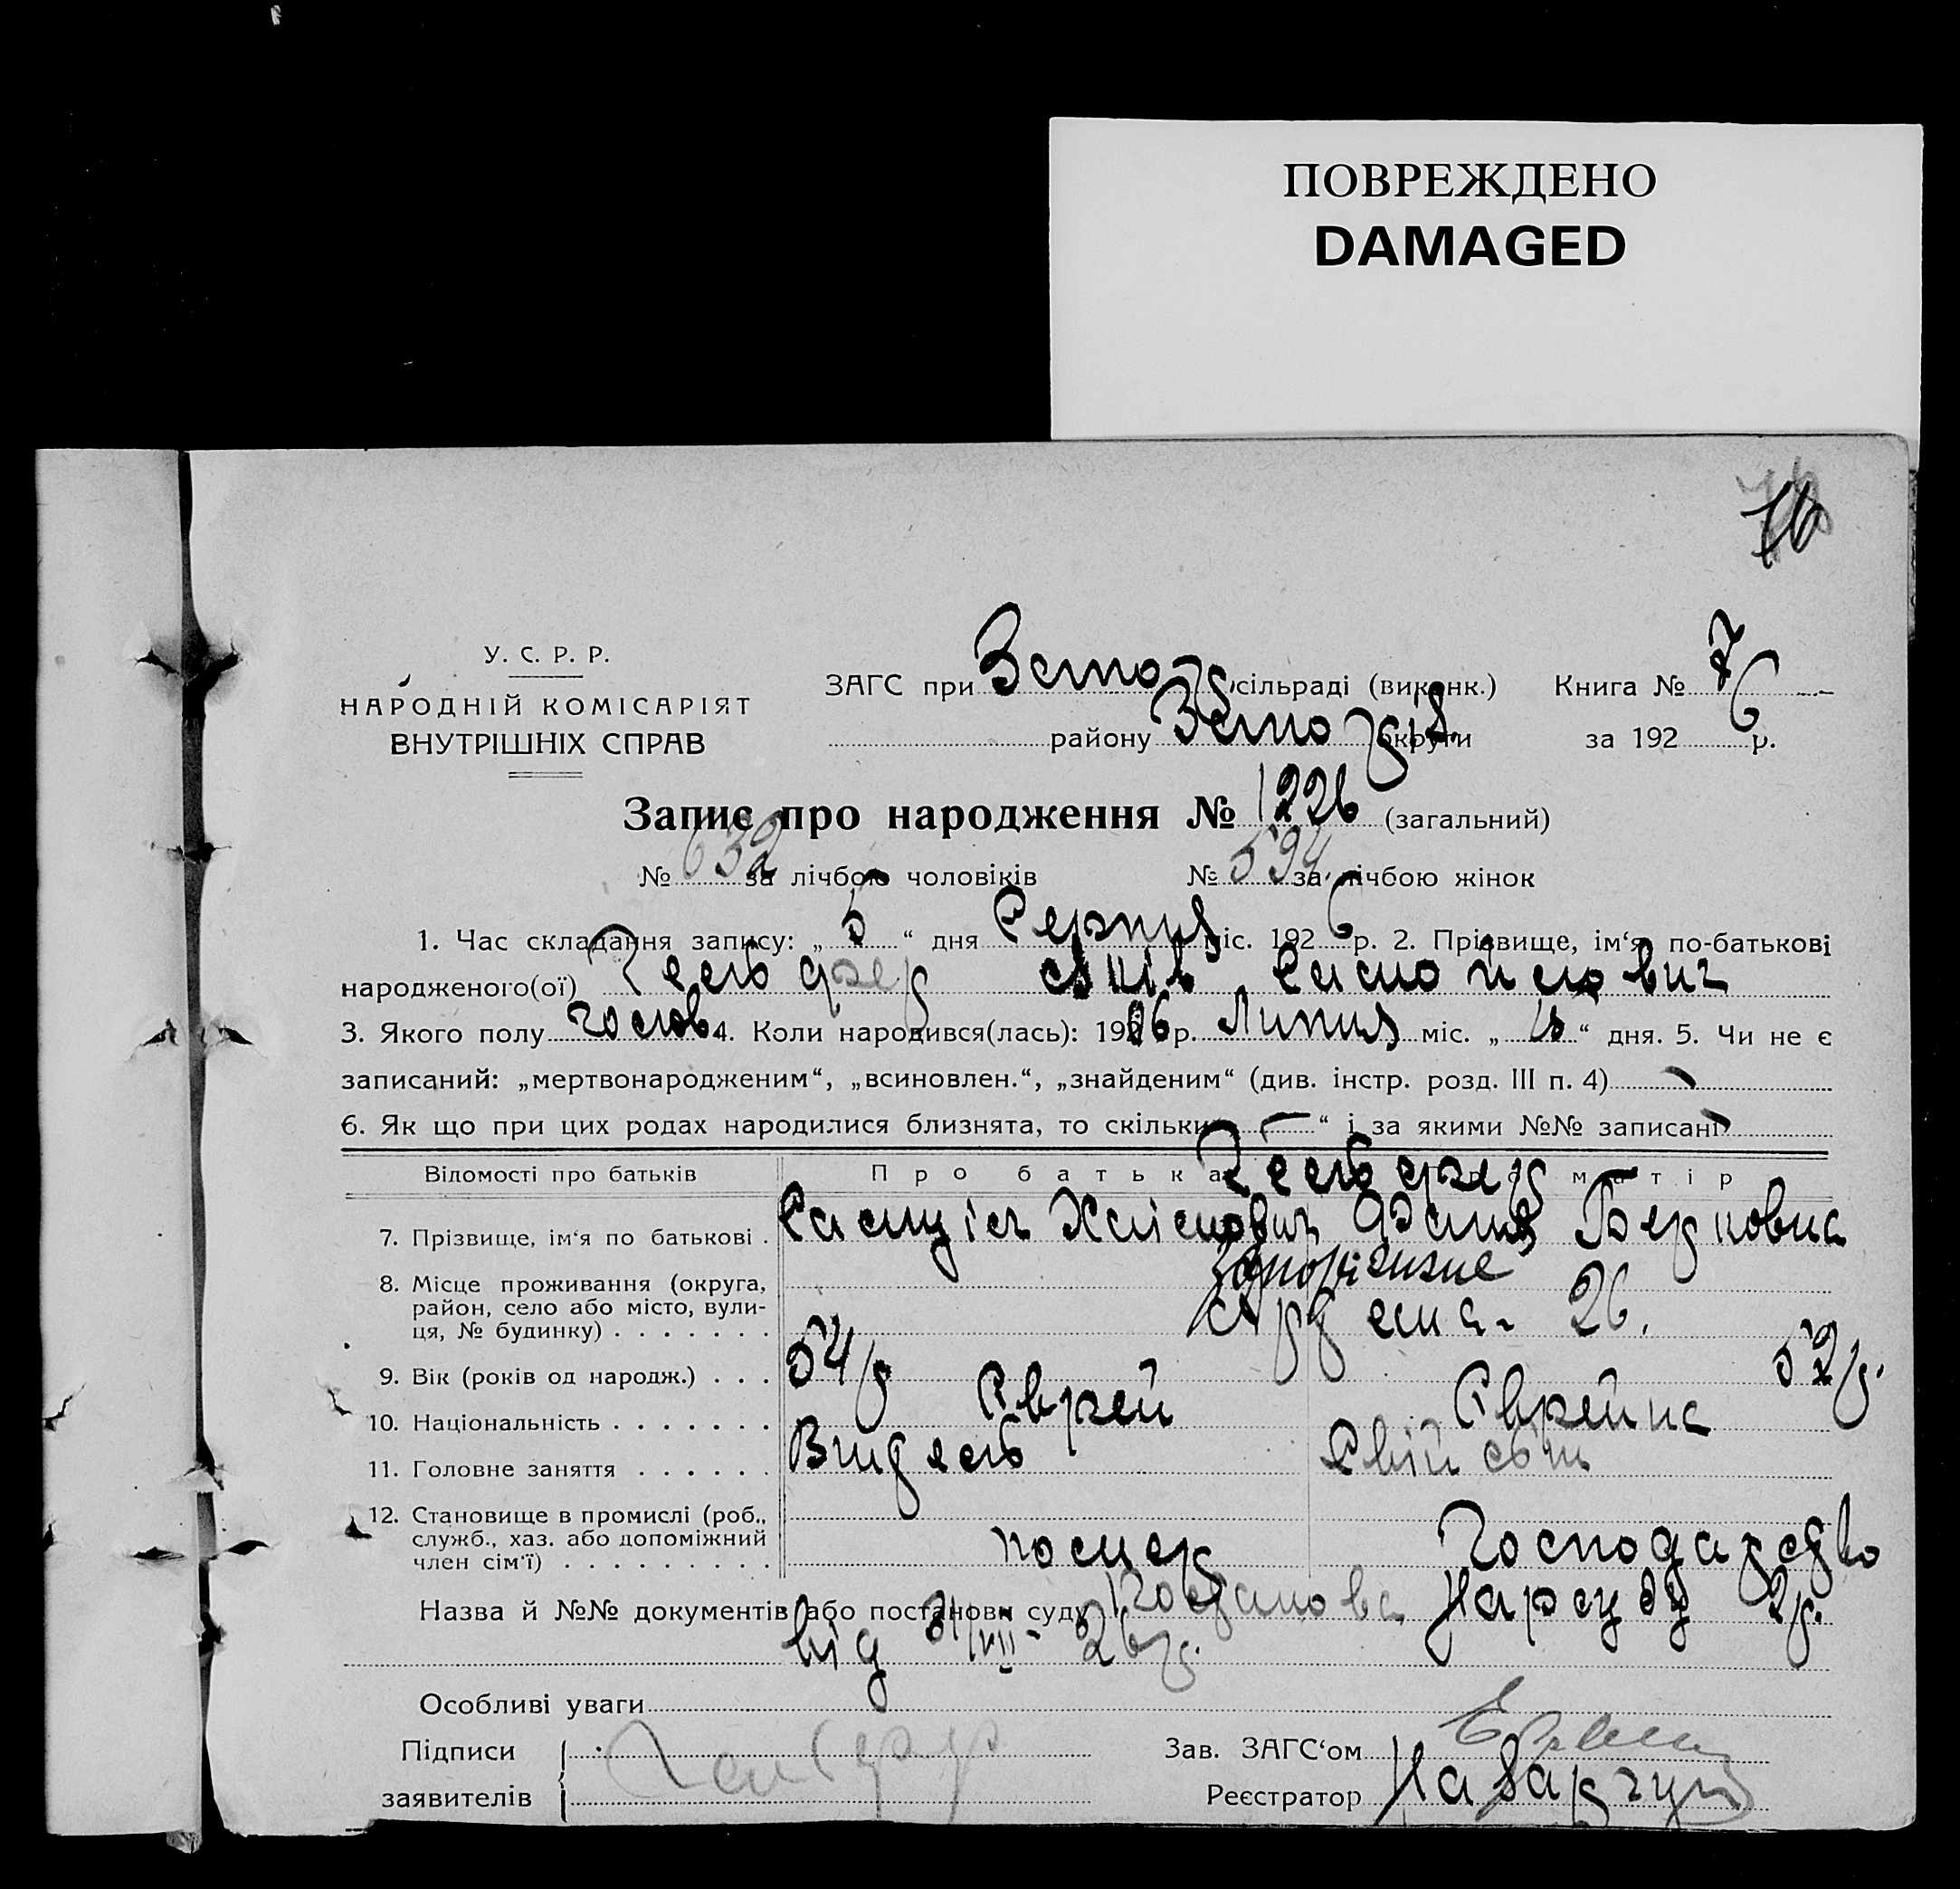 ПОВРЕЖДЕНО
DAMAGED
76
У. С. Р. Р.
НАРОДНІЙ КОМІСАРІЯТ
ВНУТРІШНІХ СПРАВ
ЗАГС при сільраді (виконк.) Книга № 7
району округи за 1926 р.
Запис про народження № 1226 (загальний)
№ 632 за лічбою чоловіків № 594 за лічбою жінок
1. Час складання запису: „5“ дня Серпня міс. 1926 р. 2. Прізвище, ім‘я, по-батькові
народженого(ої) Гельфер
3. Якого полу чолов. 4. Коли народився(лась): 1906 р. Липня міс. „ “ дня. 5. Чи не є
записаний: „мертвонародженим“, „всиновлен.“, „знайденим“ (див. інстр. розд. III п. 4)
6. Як що при цих родах народилися близнята, то скільки „—“ і за якими №№ записані
Відомості про батьків Про батька Про матір
Гельфер
7. Прізвище, ім‘я по батькові . Самуїл Хаїмович Фаня Берковна
8. Місце проживання (округа, район, село або місто, вулиця, № будинку) . . . . . . . Запоріжжя 26.
9. Вік (років од народж.) . . . 54 р 52 р.
10. Національність . . . . . . . Єврей Єврейка
11. Головне заняття . . . . . . Свій
12. Становище в промислі (роб., служб., хаз. або допоміжний член сім‘ї) . . . . . . . . . Господарство
Назва й №№ документів або постанови суду Постанова Нарсуду 2 р.
від 31/VII- 26 р.
Особливі уваги
Підписи заявителів
Гельфер
Зав. ЗАГС‘ом
Реєстратор